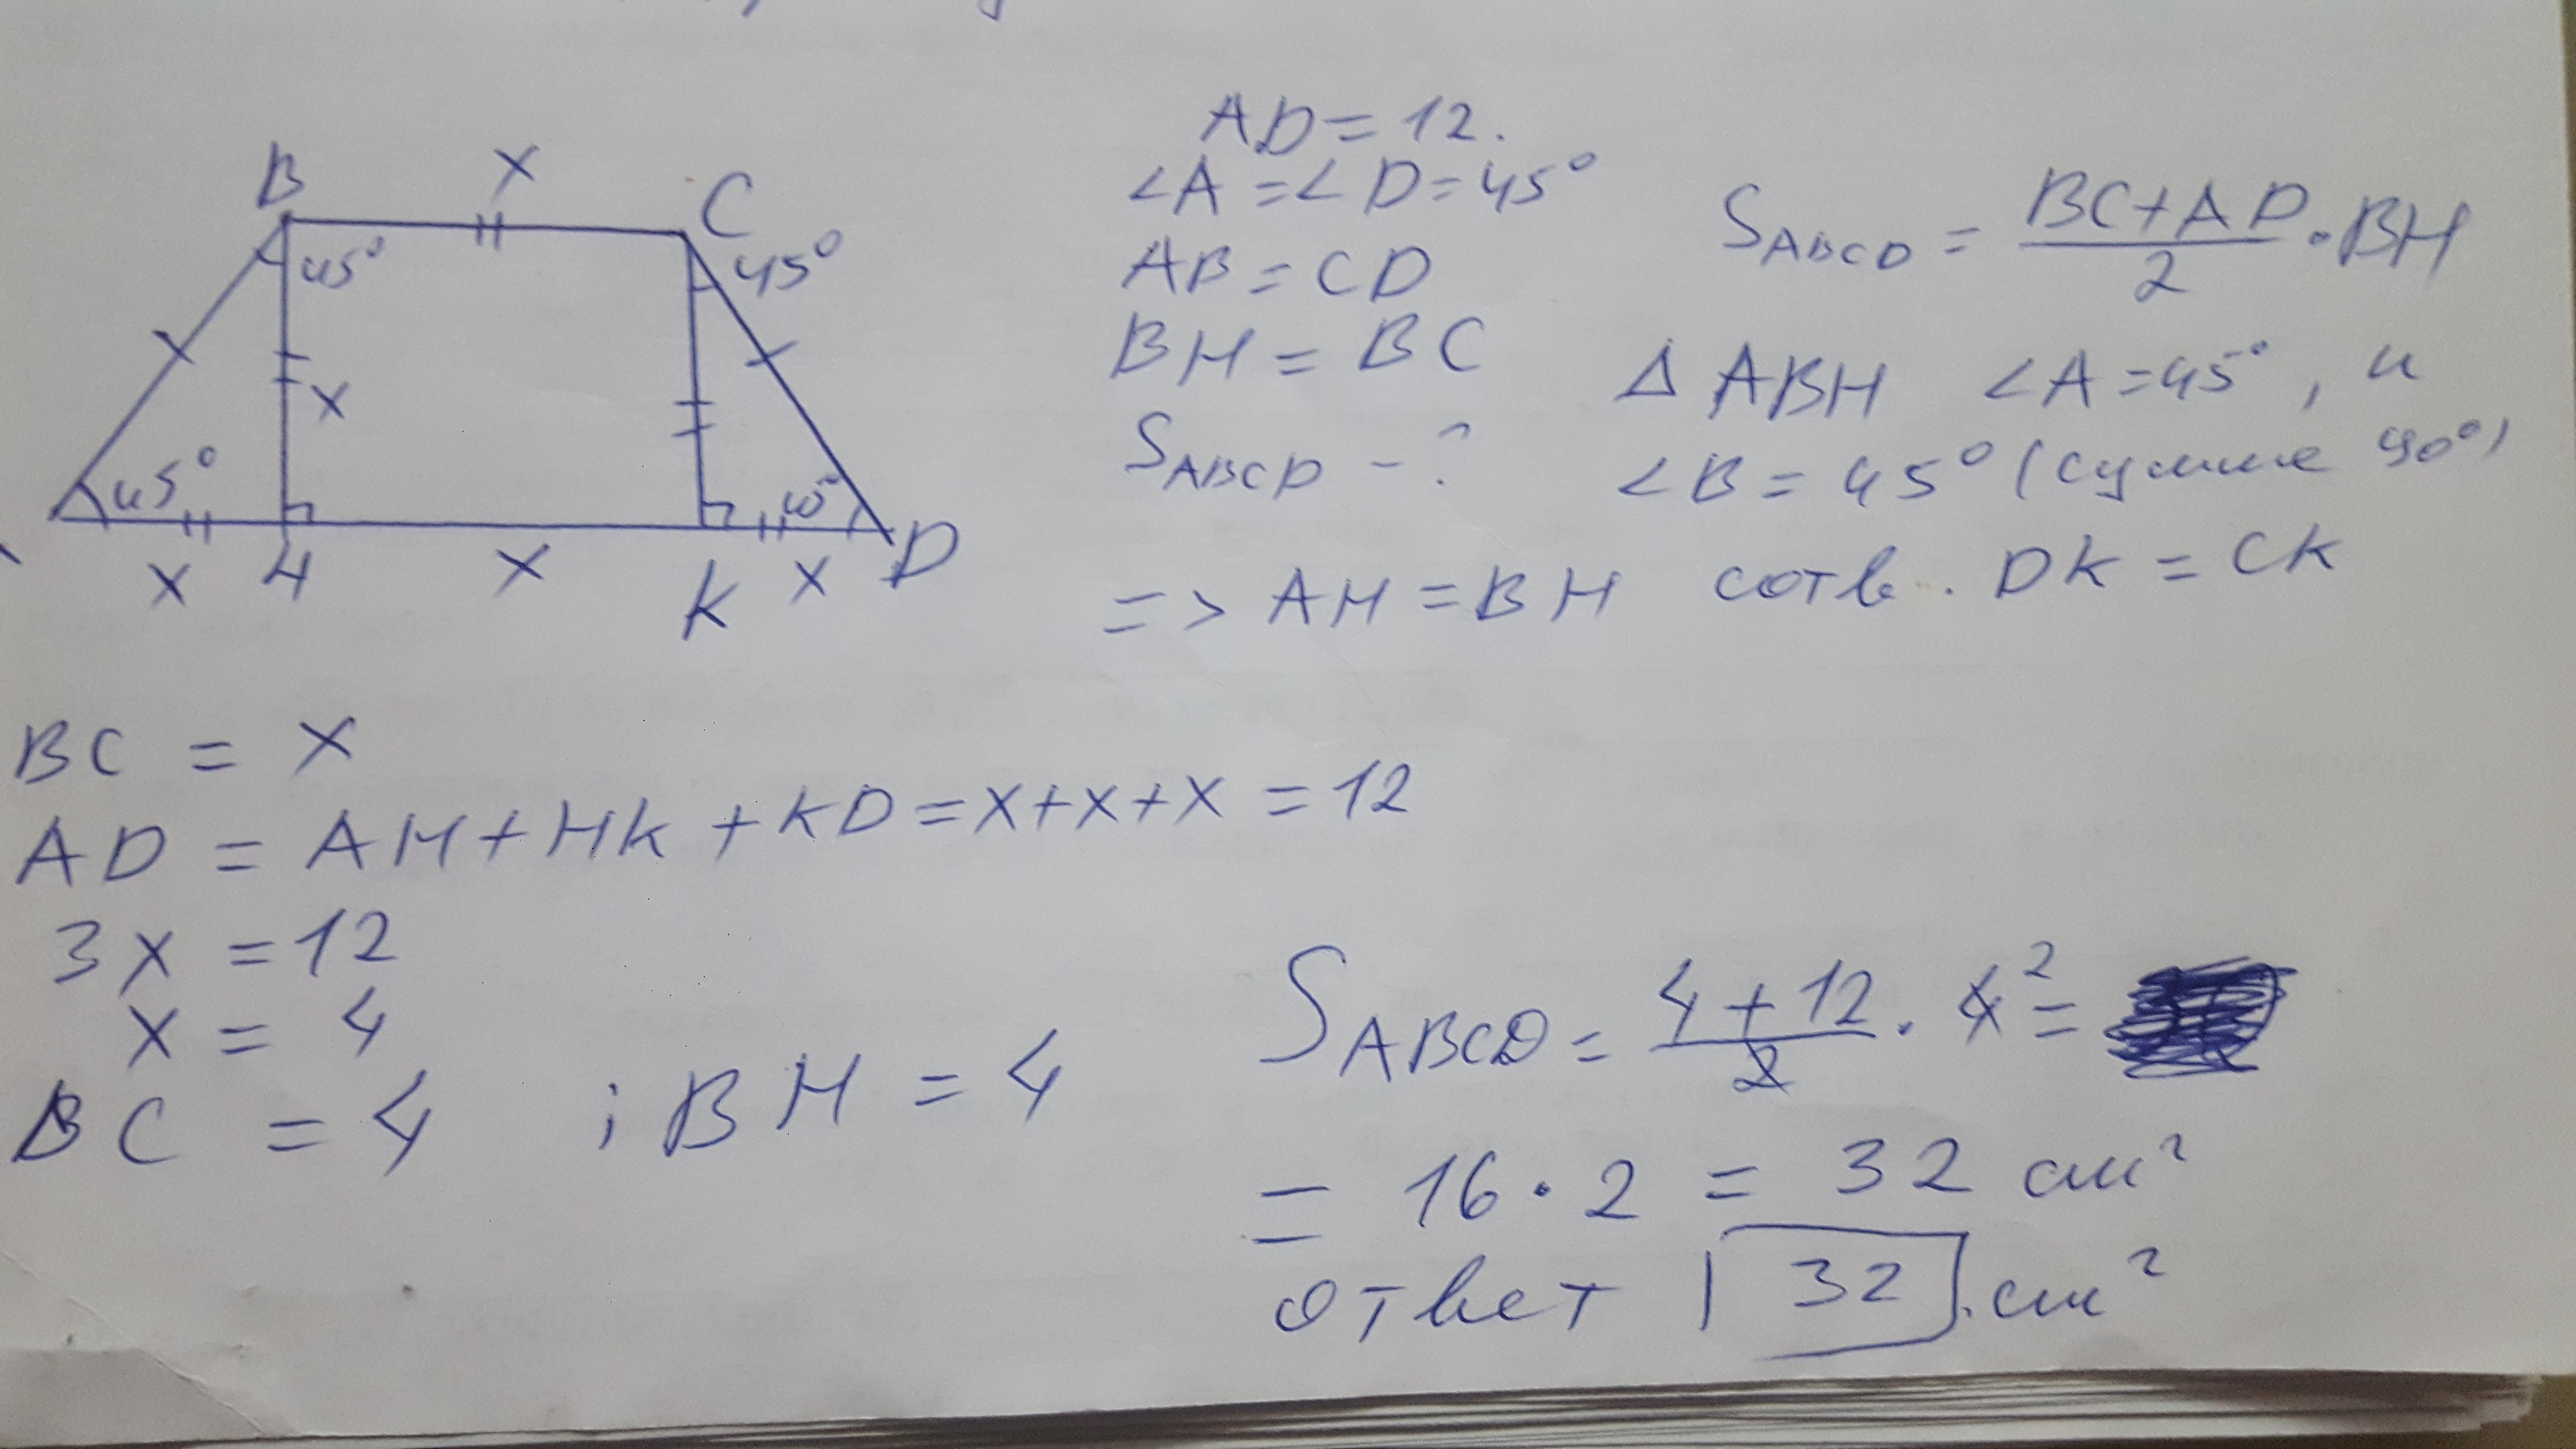 B x C
45° 45°
x
45° 45°
x H x K x D
AD = 12.
∠A = ∠D = 45°
AB = CD
BH = BC
S ABCD - ?
S ABCD = (BC + AD)/2 · BH
△ ABH ∠A = 45°, и
∠B = 45° (сумме 90°)
=> AH = BH соотв. DK = CK
BC = x
AD = AH + HK + KD = x + x + x = 12
3x = 12
x = 4
BC = 4 ; BH = 4
S ABCD = (4 + 12)/2 · 4² =
= 16 · 2 = 32 см²
ответ 32 см²